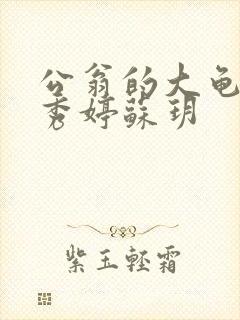 公翁的大龟
秀婷蘇玥
紫玉轻霜